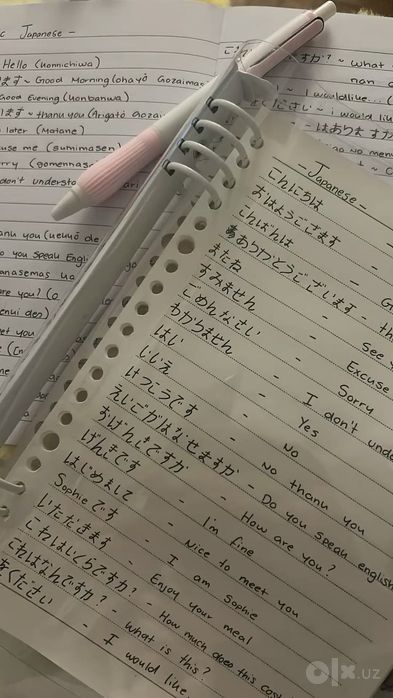 Japanese -
Hello (Konnichiwa)
ます ~ Good Morning (Ohayō Gozaimas
Good Evening (Konbanwa)
ます ~ thank you (Arigatō Gozai
later (Matane)
me (Sumimasen)
(Gomennasa
don't understand
you
you speak Engl
are you?
- Japanese -
こんにちは -
おはようございます -
こんばんは -
ありがとうございます - th
またね - See
すみません - Excuse
ごめんなさい - Sorry
わかりません - I don't unde
はい - Yes
いいえ - No
けつこうです - No thank you
えいごがはなせますか - Do you speak english
おげんきですか - How are you?
げんきです - I'm fine
はじめまして - Nice to meet you
Sophie です - I am Sophie
いただきます - Enjoy your meal
これはいくらですか? - How much does this cost
これはなんですか? - What is this?
ください - I would like
すか? ~ what
~ I would like... (
ください ~ i would lik
- はありますか
no menu
olx.uz